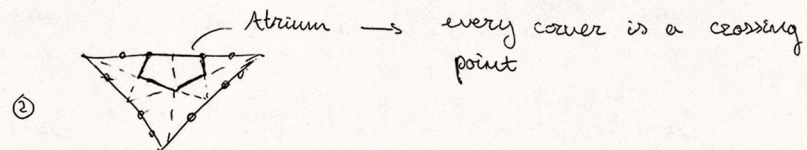 Atrium → every corner is a crossing
point
②